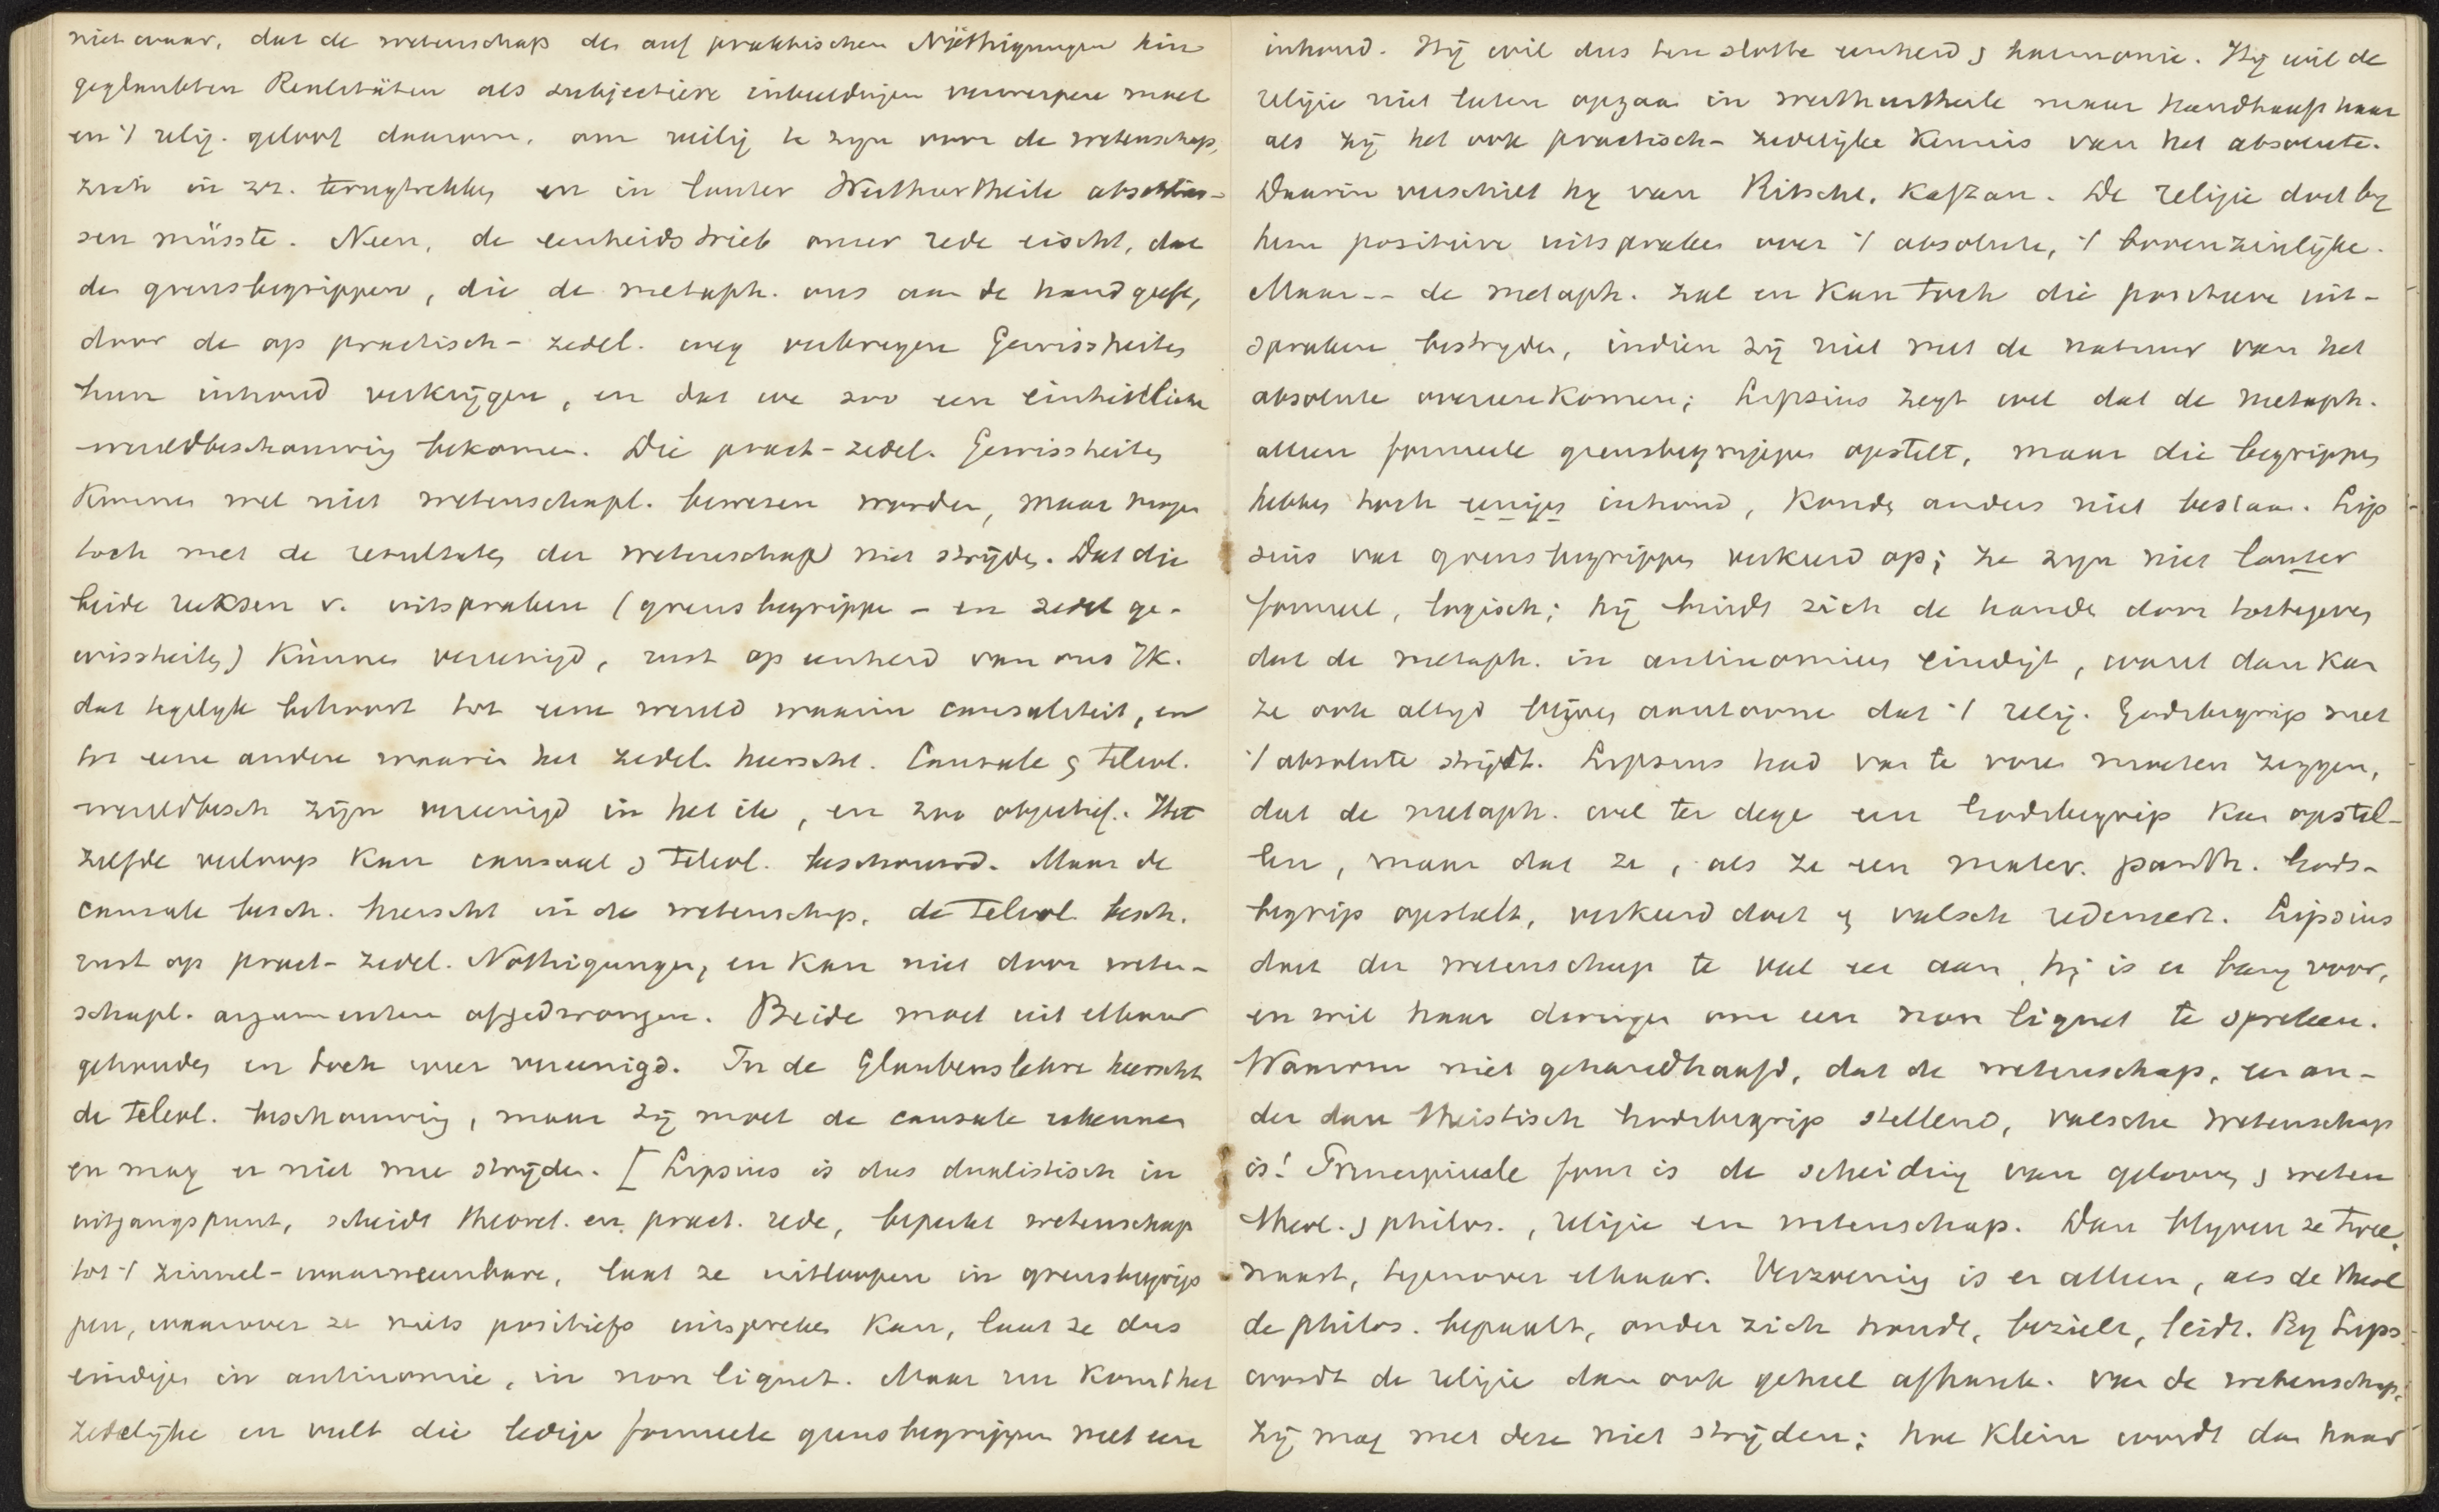 niet waar, dat de wetenschap de auf praktischen Nöthigungen hin
geglaubten Realitäten als subjectieve inbeeldingen verwerpen moet
en 't relig. geloof daarom, om veilig te zyn voor de wetenschap,
zich in zz. terugtrekken en in lauter Werthurtheile abschlies-
sen müsste. Neen, de eenheidsdrieb onzer rede eischt, dat
de grensbegrippen, die de metaph. ons aan de hand geeft,
door de op practisch-zedel. weg verkregen Gewissheiten
hun inhoud verkrijgen, en dat we zoo een einheitliche
wereldbeschouwing bekomen. Die pract-zedel. Gewissheiten
kunnen wel niet wetenschapl. bewezen worden, maar mogen
toch met de resultaten der wetenschap niet strijden. Dat die
beide reeksen v. uitspraken (grensbegrippen - en zedel ge-
wissheiten) kunnen vereenigd, rust op eenheid van ons Ik.
dat tegelyk behoort tot eene wereld waarin causaliteit, en
tot eene andere waarin het zedel. heerscht. Causale & teleol.
wereldbesch zijn vereenigd in het ik, en zoo objectief. Het
zelfde verloop kan causaal & teleol. beschouwd. Maar de
causale besch. heerscht in de wetenschap, de teleol besch.
rust op pract-zedel. Nöthigungen, en kan niet door weten-
schapl. argumenten afgedwongen. Beide moet uit elkaar
gehouden en toch weer vereenigd. In de Glaubenslehre heerscht
de teleol. beschouwing, maar zij moet de causale erkennen
en mag er niet mee strijden. [ Lipsius is dus dualistisch in
uitgangspunt, scheidt theoret. en pract. rede, beperkt wetenschap
tot 't zinnel-waarneembare, laat ze uitloopen in grensbegrip
pen, waarover ze niets positiefs uitspreken kan, laat ze dus
eindigen in antinomie, in non liquet. Maar nu komt het
zedelijke en vult die ledige formeele grensbegrippen met een
inhoud. Hij wil dus ten slotte eenheid & harmonie. Hij wil de
religie niet laten opgaan in werthurtheile maar handhaaft haar
als zij het ook practisch-zedelijke kennis van het absolute.
Daarin verschilt hy van Ritschl, Kaftan. De religie doet by
hem positieve uitspraken over 't absolute, 't bovenzinlijke.
Maar-- de metaph. zal en kan toch die positieve uit-
spraken bestryden, indien zij niet met de natuur van het
absolute overeenkomen; Lipsius zegt wel dat de metaph.
alleen formeele grensbegrippen opstelt, maar die begrippen
hebben toch eenigen inhoud, konden anders niet bestaan. Lip
sius vat grensbegrippen verkeerd op; ze zyn niet lauter
formeel, logisch; hij bindt zich de handen door toetegeven
dat de metaph. in antinomieen eindigt, want dan kan
ze ook altyd blijven aantoonen dat 't relig. Godsbegrip met
't absolute strijdt. Lipsius had van te voren moeten zeggen,
dat de metaph. wel ter dege een Godsbegrip kan opstel-
len, maar dat ze, als ze een mater. panth. Gods-
begrip opstelt, verkeerd doet & valsch redeneert. Lipsius
doet der wetenschap te veel eer aan, hij is er bang voor,
en wil haar dwingen om een non liquet te spreken.
Waarom niet gehandhaafd, dat de wetenschap, een an-
der dan theistisch Godsbegrip stellend, valsche wetenschap
is! Principieele fout is de scheiding van gelooven & weten
theol. & philos., religie en wetenschap. Dan blyven ze twee,
naast, tegenover elkaar. Verzoening is er alleen, als de theol
de philos. bepaalt, onder zich houdt, bezielt, leidt. By Lips
wordt de religie dan ook geheel afhank. van de wetenschap.
Zij mag met deze niet strijden; hoe klein wordt dan haar